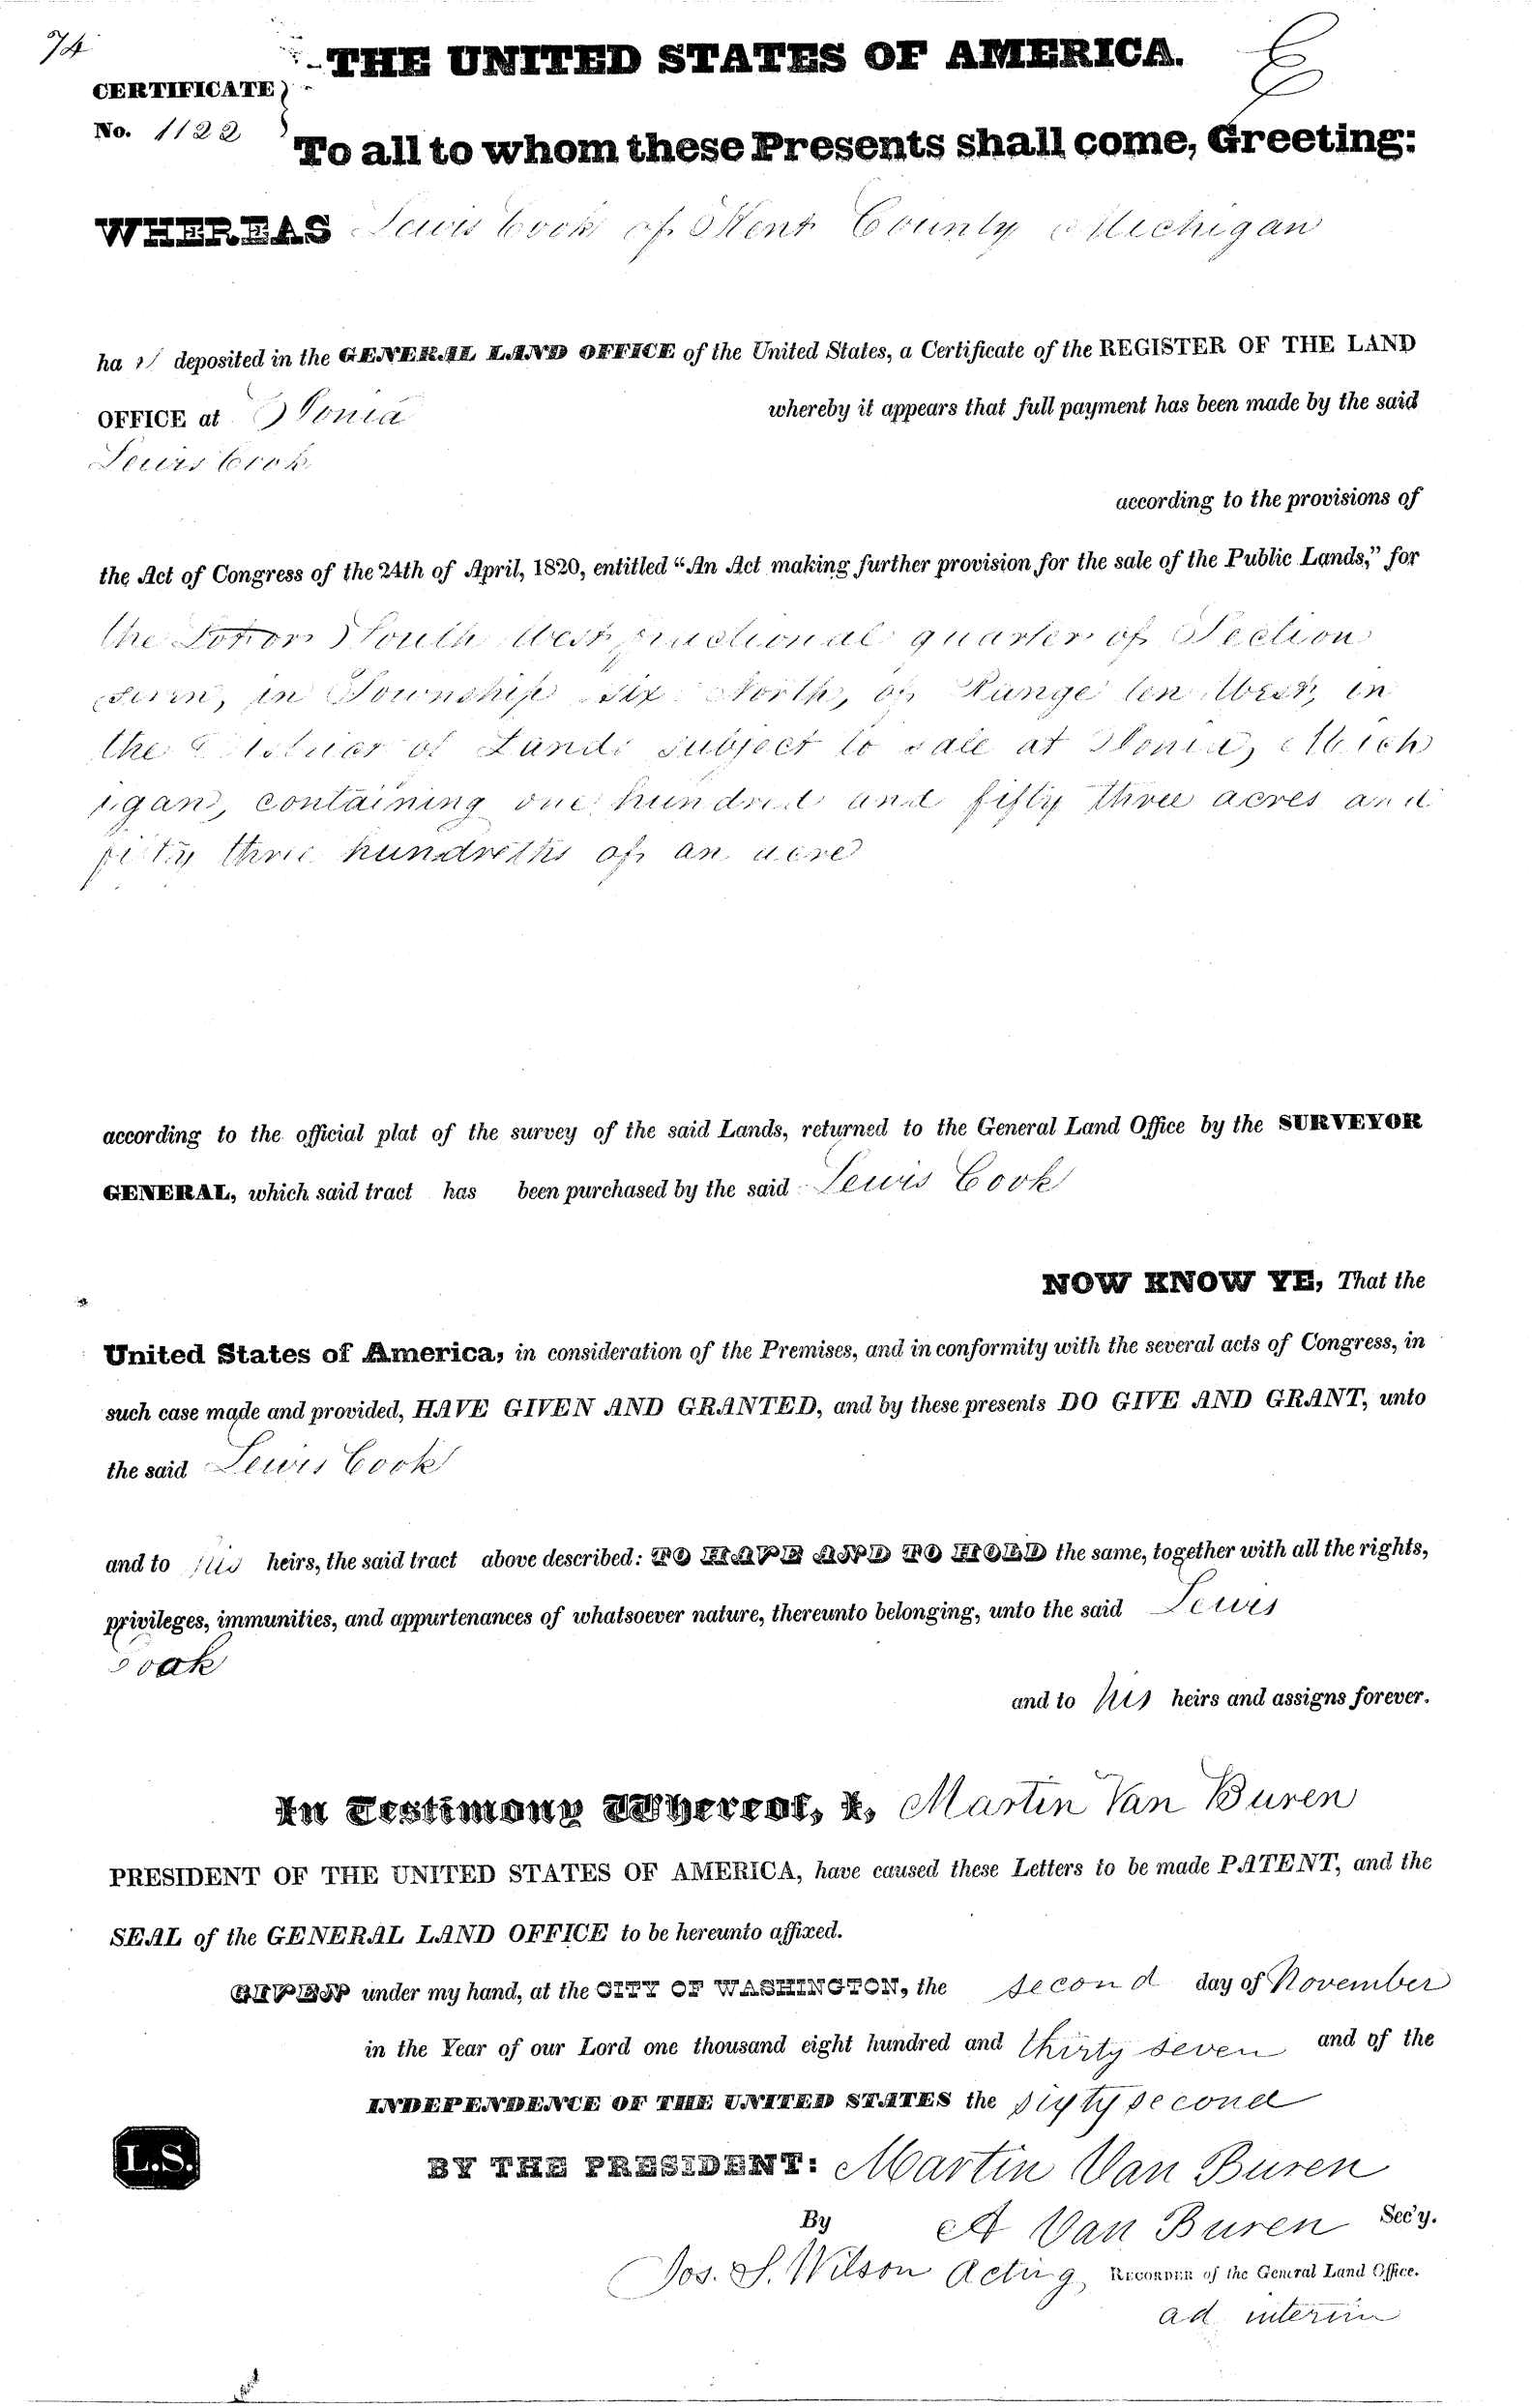 74
THE UNITED STATES OF AMERICA.
CERTIFICATE
No. 1122
To all to whom these Presents shall come, Greeting:
WHEREAS Lewis Cook of Kent County Michigan
ha s deposited in the GENERAL LAND OFFICE of the United States, a Certificate of the REGISTER OF THE LAND
OFFICE at Ionia whereby it appears that full payment has been made by the said
Lewis Cook
according to the provisions of
the Act of Congress of the 24th of April, 1820, entitled “An Act making further provision for the sale of the Public Lands,” for
the South West fractional quarter of Section
seven, in Township six North, of Range ten West, in
the District of Lands subject to sale at Ionia, Mich
igan, containing one hundred and fifty three acres and
fifty three hundredths of an acre
according to the official plat of the survey of the said Lands, returned to the General Land Office by the SURVEYOR
GENERAL, which said tract has been purchased by the said Lewis Cook
NOW KNOW YE, That the
United States of America, in consideration of the Premises, and in conformity with the several acts of Congress, in
such case made and provided, HAVE GIVEN AND GRANTED, and by these presents DO GIVE AND GRANT, unto
the said Lewis Cook
and to his heirs, the said tract above described: TO HAVE AND TO HOLD the same, together with all the rights,
privileges, immunities, and appurtenances of whatsoever nature, thereunto belonging, unto the said Lewis
Cook
and to his heirs and assigns forever.
In Testimony Whereof, I, Martin Van Buren
PRESIDENT OF THE UNITED STATES OF AMERICA, have caused these Letters to be made PATENT, and the
SEAL of the GENERAL LAND OFFICE to be hereunto affixed.
GIVEN under my hand, at the CITY OF WASHINGTON, the second day of November
in the Year of our Lord one thousand eight hundred and thirty seven and of the
INDEPENDENCE OF THE UNITED STATES the sixty second
L.S.
BY THE PRESIDENT: Martin Van Buren
By A Van Buren Sec'y.
Jos. S. Wilson Acting RECORDER of the General Land Office.
ad interim